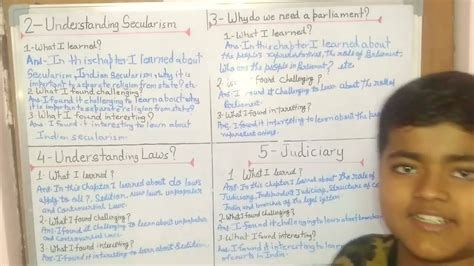 2-Understanding Secularism
1-What I learned?
Ans- In this chapter I learned about
Secularism, Indian Secularism, why it is
important to separate religion from state? etc
2. What I found challenging?
Ans. I found it challenging to learn about why
it is important to separate religion from state?
3- What I found interesting?
Ans I found it interesting to learn about
Indian secularism
3- Why do we need a parliament?
1- What I learned?
Ans- In this chapter I learned about
the people's representatives, The role of Parliament,
Who are the people in Parliament? etc
2. found challenging?
I found it challenging to learn about the role of
Parliament.
3- What I found interesting?
Ans. I found interesting to learn about the
4- Understanding Laws?
1. What I learned?
Ans. In this Chapter I learned about do laws
apply to all?, Sedition, New laws, unpopular
and Controversial Laws
2. What I found challenging?
Ans. I found it challenging to learn about unpopular
and Controversial Laws
3- What I found interesting?
Ans. I found it interesting to learn about Sedition.
5- Judiciary
1 What I learned?
Ans. In this Chapter I learned about the role of
Judiciary, Independent Judiciary, Structure of Co
India and branches of the legal system
2. What I found challenging?
Ans. I found it challenging to learn about branches
3 What I found interesting?
Ans. I found it interesting to learn
of courts in India.